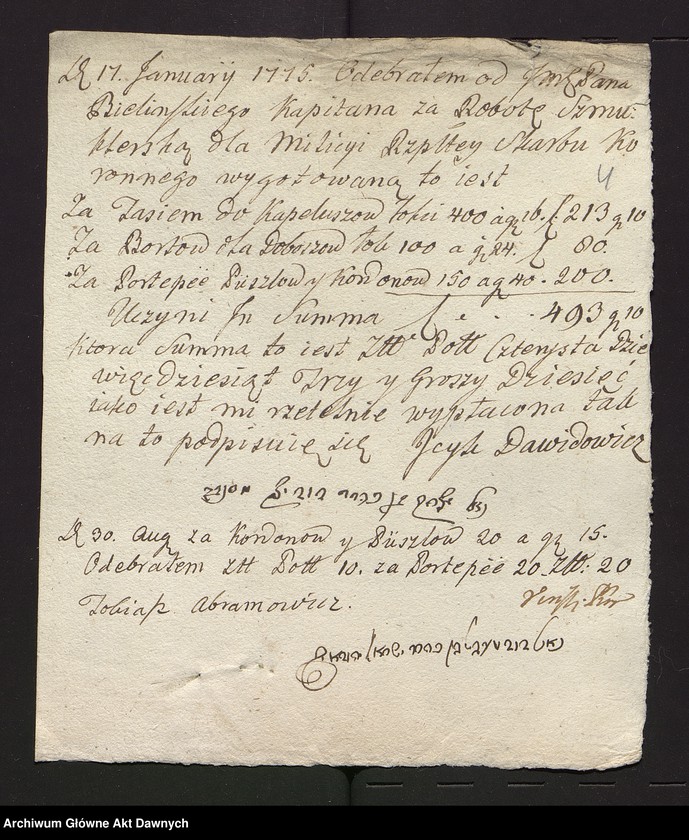 D 17. Januarij 1775. Odebrałem od Jmc Pana
Bielinskiego Kapitana za Robotę Szmu-
klerską dla Milicyi Rzpltey Skarbu Ko
ronnego wygotowaną to iest
4
Za Tasiem do Kapeluszow łokci 400 a gr 16. f 213 g 10
Za Bortow dla Doboszow łok 100 a gr 24. f 80.
Za Portepèè Puszlow y Kordonow 150 a gr 40 - 200.
Uczyni In Summa f . . . 493 g 10
Ktora Summa to iest Złł Poll Czterysta Dzie
więcdziesiąt Trzy y Groszy Dziesięć
iako iest mi rzetelnie wypłacona tak
na to podpisuię się Jcyk Dawidowicz
D 30. Aug za Kordonow y Puszlow 20 a gr 15.
Odebrałem Złł Poll 10. za Portepèè 20 Złł. 20
Tobiasz Abramowicz.
Archiwum Główne Akt Dawnych